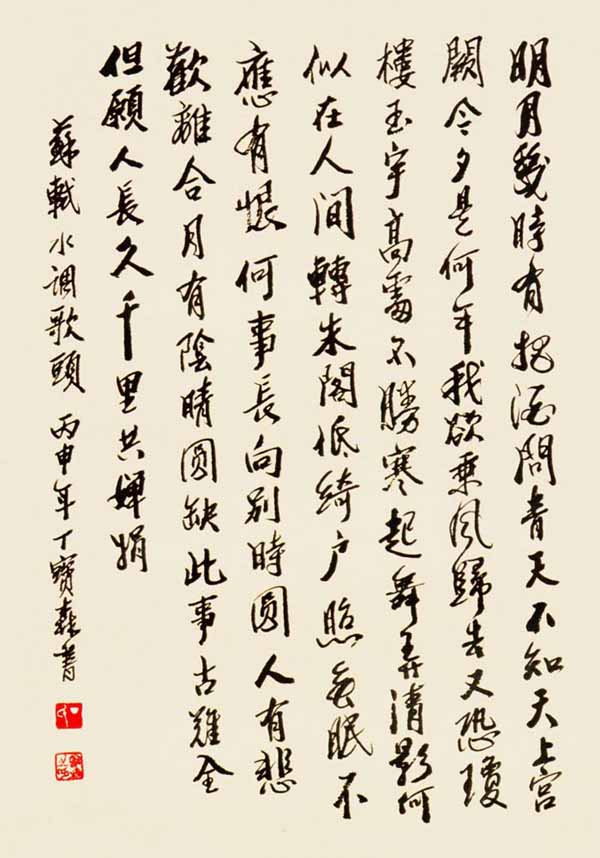 明月幾時有把酒問青天不知天上宮
闕今夕是何年我欲乘風歸去又恐瓊
樓玉宇高處不勝寒起舞弄清影何
似在人間轉朱閣低綺户照無眠不
應有恨何事長向别時圆人有悲
歡離合月有陰晴圆缺此事古難全
但願人長久千里共嬋娟
蘇軾水调歌頭 丙申年丁寶森書